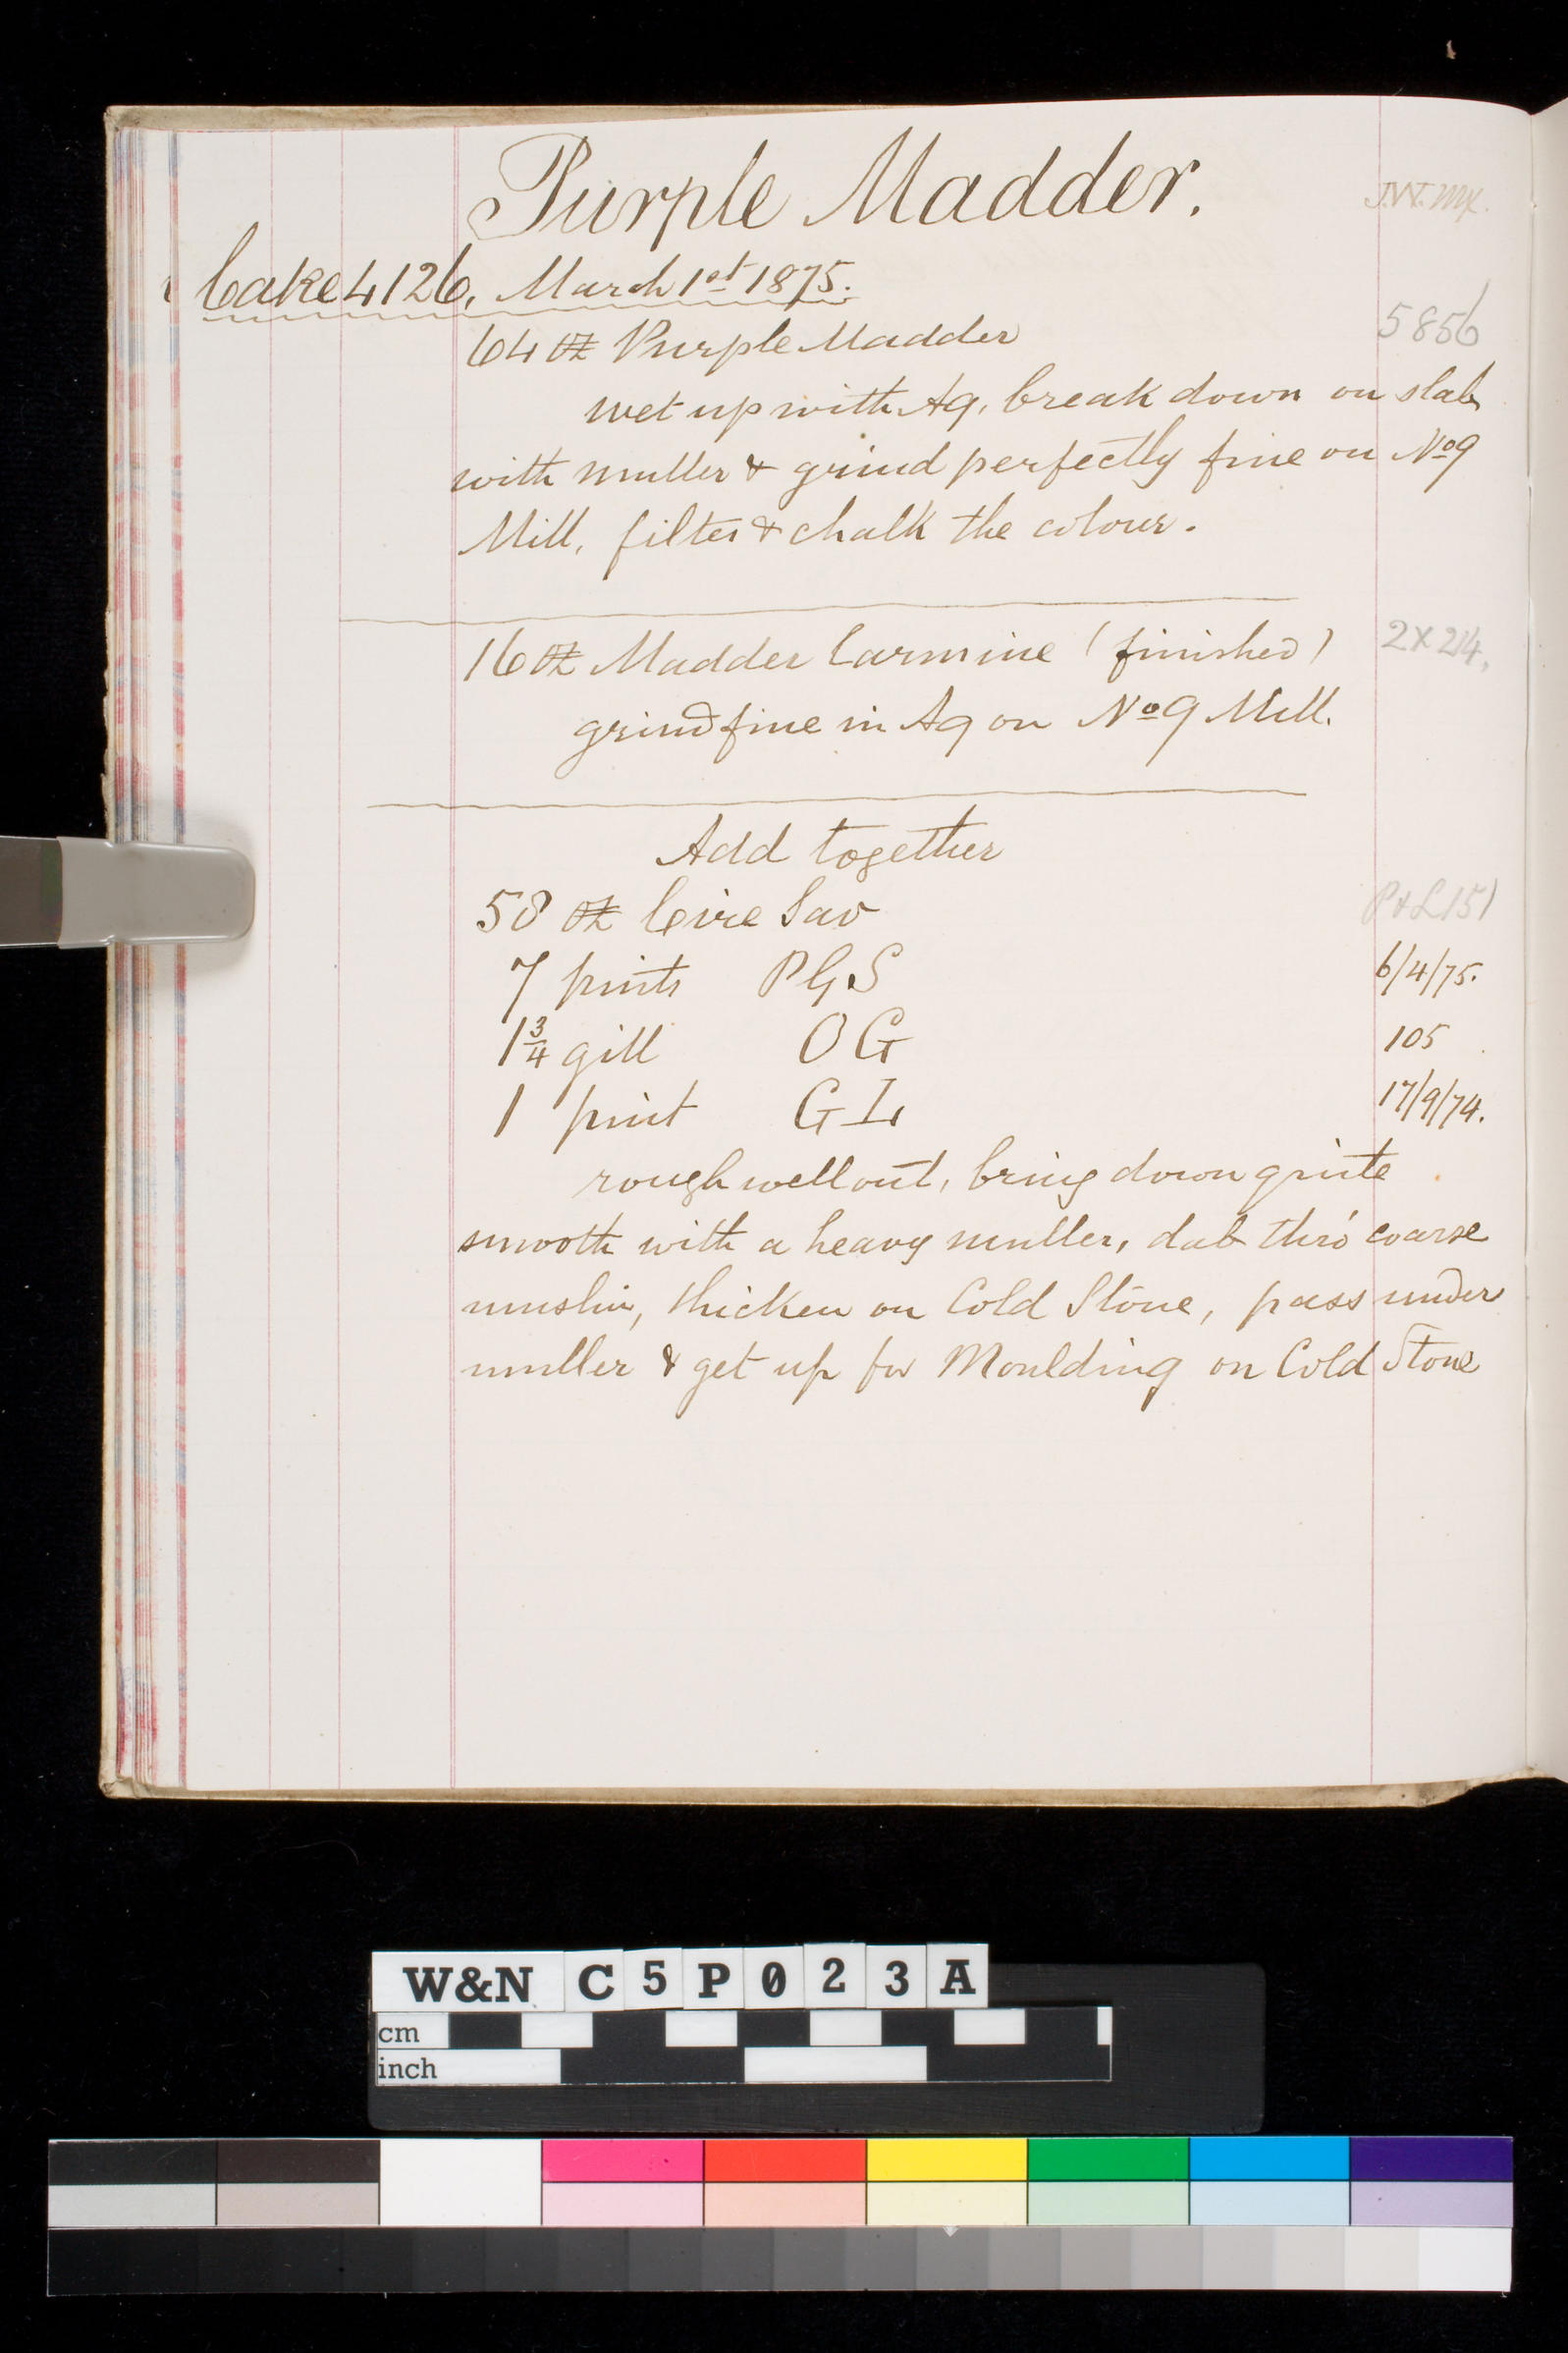 Purple Madder.
J.W. mx.
Cake 4126. March 1st 1875.
64 oz Purple Madder 5856
wet up with Aq, break down on slab
with muller & grind perfectly fine on No 9
Mill, filter & chalk the colour.
16 oz Madder Carmine (finished) 2X214,
grind fine in Aq on No 9 Mill.
Add together
58 oz Cire Sav P&L151
7 pints P G S 6/4/75.
1 3/4 gill O G 105
1 pint G L 17/9/74.
rough well out, bring down quite
smooth with a heavy muller, dab thro' coarse
muslin, thicken on Cold Stone, pass under
muller & get up for Moulding on Cold Stone
W&N C5P023A
cm
inch